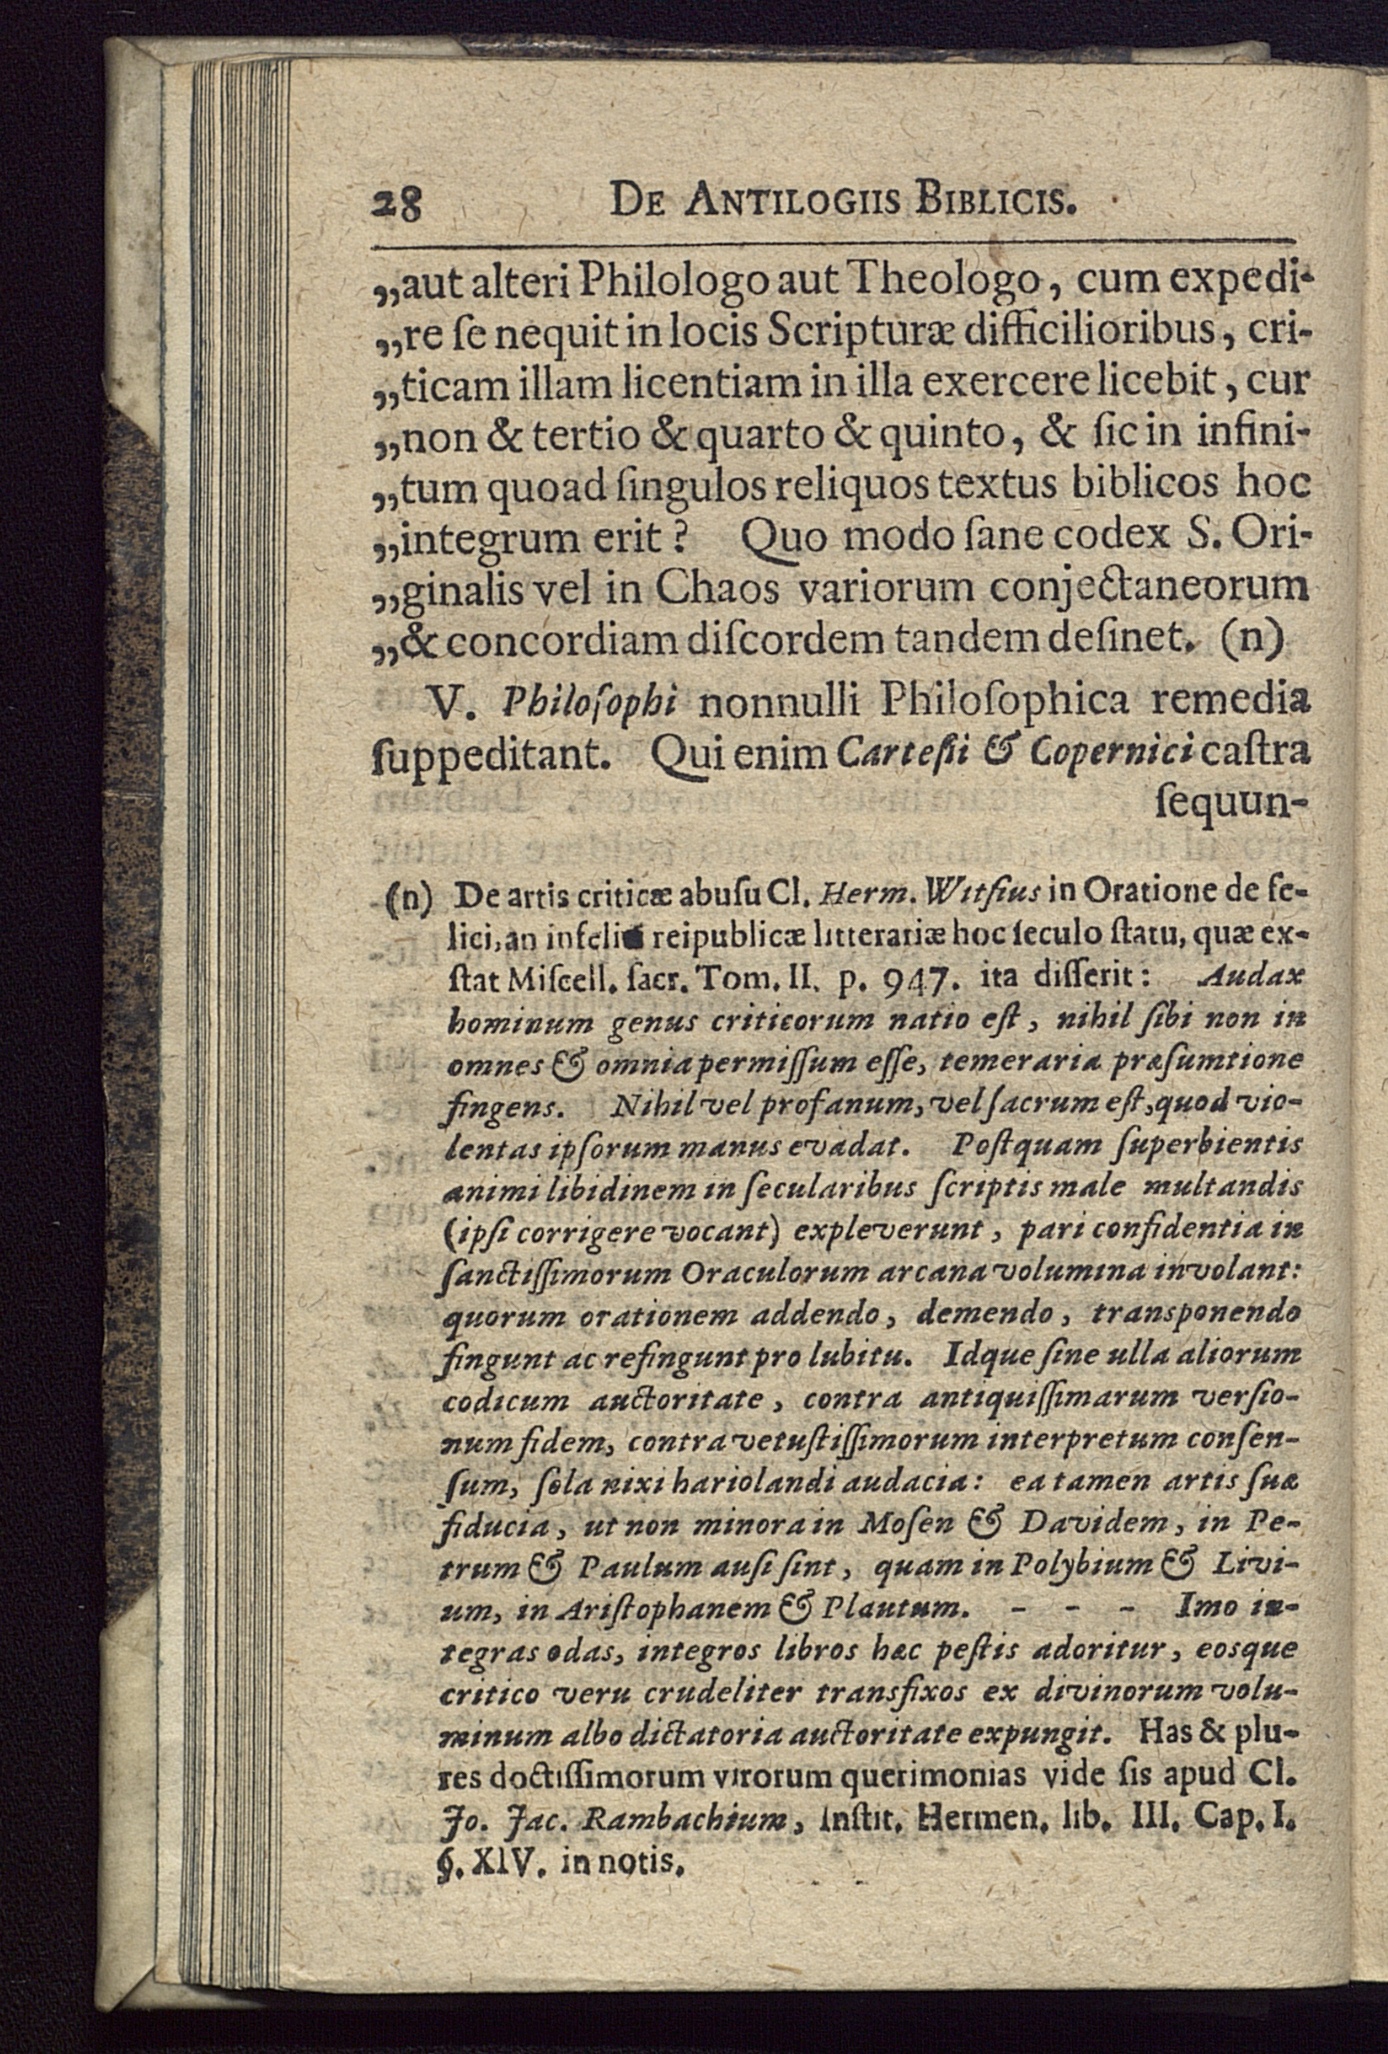 28 DE ANTILOGIIS BIBLICIS.
„aut alteri Philologo aut Theologo, cum expedi-
„re ſe nequit in locis Scripturæ difficilioribus, cri-
„ticam illam licentiam in illa exercere licebit, cur
„non & tertio & quarto & quinto, & ſic in infini-
„tum quoad ſingulos reliquos textus biblicos hoc
„integrum erit? Quo modo ſane codex S. Ori-
„ginalis vel in Chaos variorum conjectaneorum
„& concordiam diſcordem tandem deſinet. (n)
V. Philoſophi nonnulli Philoſophica remedia
ſuppeditant. Qui enim Carteſii & Copernici caſtra
ſequun-
(n) De artis criticæ abuſu Cl. Herm. Witſius in Oratione de fe-
lici, an infelici reipublicæ litterariæ hoc ſeculo ſtatu, quæ ex-
ſtat Miſcell. ſacr. Tom. II. p. 947. ita diſſerit: Audax
hominum genus criticorum natio eſt, nihil ſibi non in
omnes & omnia permiſſum eſſe, temeraria præſumtione
fingens. Nihil vel profanum, vel ſacrum eſt, quod vio-
lentas ipſorum manus evadat. Poſtquam ſuperbientis
animi libidinem in ſecularibus ſcriptis male multandis
(ipſi corrigere vocant) expleverunt, pari confidentia in
ſanctiſſimorum Oraculorum arcana volumina involant:
quorum orationem addendo, demendo, transponendo
fingunt ac refingunt pro lubitu. Idque ſine ulla aliorum
codicum auctoritate, contra antiquiſſimarum verſio-
num fidem, contra vetuſtiſſimorum interpretum conſen-
ſum, ſola nixi hariolandi audacia: ea tamen artis ſuæ
fiducia, ut non minora in Moſen & Davidem, in Pe-
trum & Paulum auſi ſint, quam in Polybium & Livi-
um, in Ariſtophanem & Plautum. - - - Imo in-
tegras odas, integros libros hæc peſtis adoritur, eosque
critico veru crudeliter transfixos ex divinorum volu-
minum albo dictatoria auctoritate expungit. Has & plu-
res doctiſſimorum virorum querimonias vide ſis apud Cl.
Jo. Jac. Rambachium, Inſtit. Hermen. lib. III. Cap. I.
§. XIV. in notis.